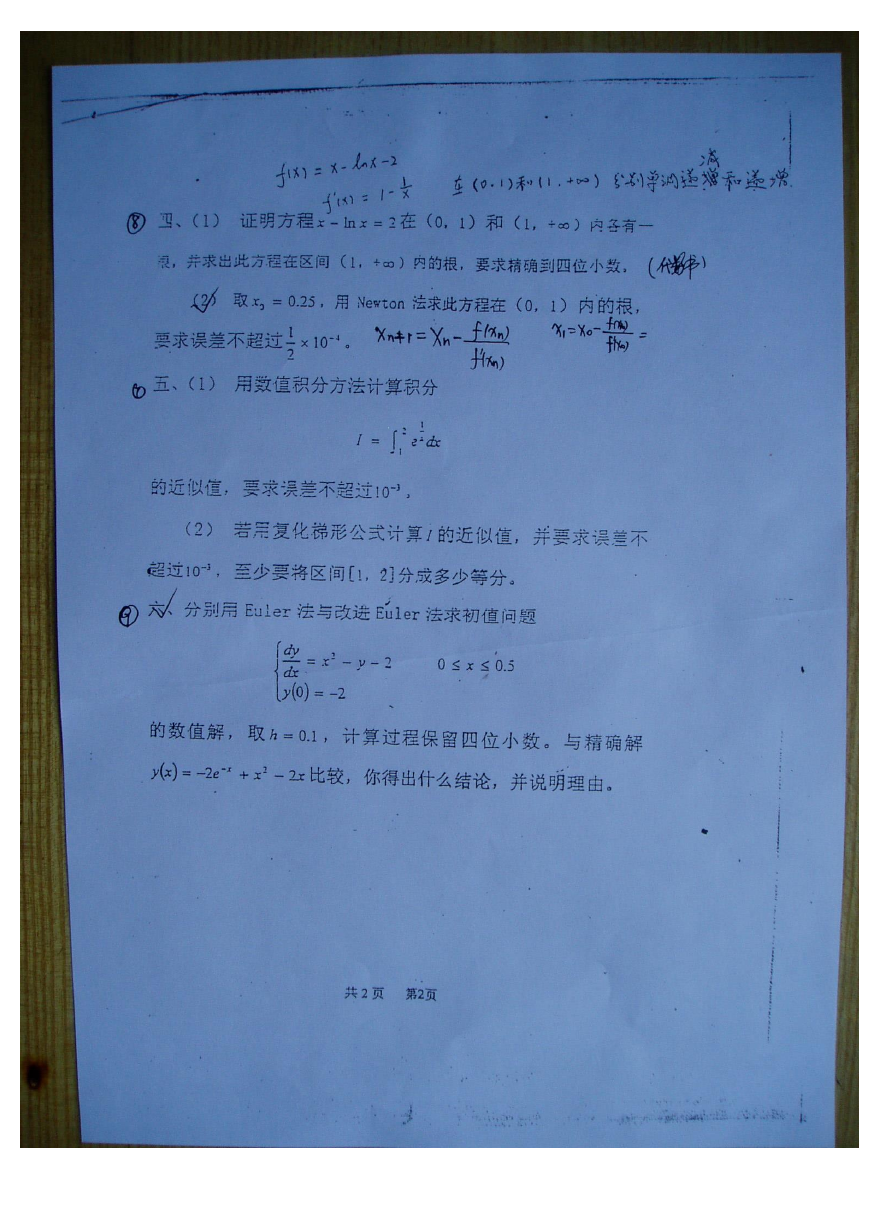 f(x) = x - ln x - 2
减
f'(x) = 1 - 1/x 在(0.1)和(1.+∞)分别单调递增和递增.
⑧ 四、（1） 证明方程 x - ln x = 2 在（0，1）和（1，+∞）内各有一
根，并求出此方程在区间（1，+∞）内的根，要求精确到四位小数。
（2） 取 x₀ = 0.25，用 Newton 法求此方程在（0，1）内的根，
要求误差不超过 1/2 × 10⁻⁴。 Xn+1 = Xn - f(xn)/f'(xn) x₁ = x₀ - f(x₀)/f'(x₀) =
五、（1） 用数值积分方法计算积分
I = ∫₁² e^(1/x) dx
的近似值，要求误差不超过10⁻³。
（2） 若用复化梯形公式计算 I 的近似值，并要求误差不
超过10⁻³，至少要将区间[1，2]分成多少等分。
⑨ 六、分别用 Euler 法与改进 Euler 法求初值问题
{ dy/dx = x² - y - 2 0 ≤ x ≤ 0.5
y(0) = -2
的数值解，取 h = 0.1，计算过程保留四位小数。与精确解
y(x) = -2e⁻ˣ + x² - 2x 比较，你得出什么结论，并说明理由。
共 2 页 第2页